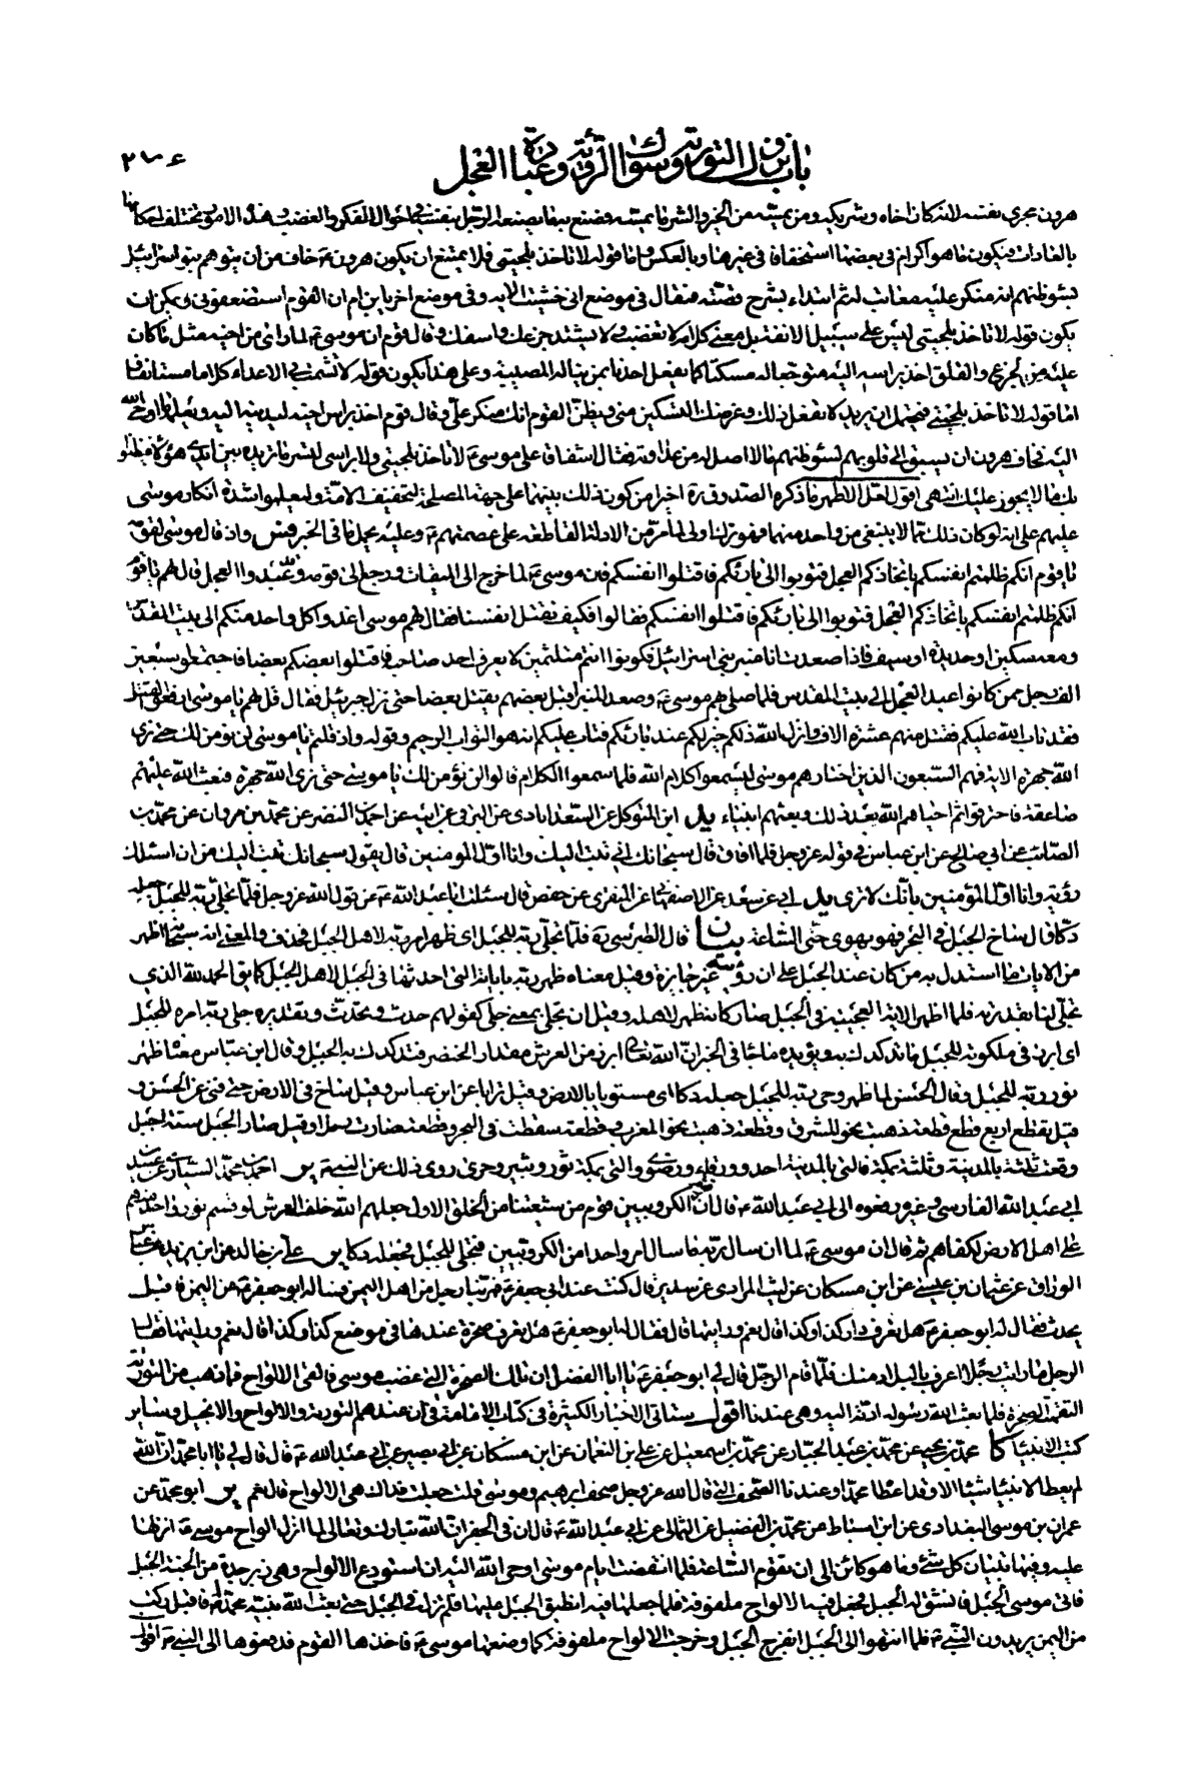 باب نزول التورية وسؤال الرؤية وعبادة العجل
٢٧٤
هرون مجرى نفسه لانه كان اخاه وشريكه ومن يمسّه من الخير والشر ما يمسّه فصنع به ما يصنعه الرجل بنفسه في احوال الفكر والغضب وهذه الامور تختلف احكامها
بالعادات فيكون ما هو اكرام في بعضها استخفافا في غيرها وبالعكس واما قوله لا تاخذ بلحيتي فلا يمتنع ان يكون هرون ع خاف من ان يتوهم بنو اسرائيل
بسوء ظنهم انه منكر عليه معاتب له ثم ابتداء بشرح قصّته فقال في موضع اني خشيت الاية وفي موضع اخر يا بن ام ان القوم استضعفوني ويمكن ان
يكون قوله لا تاخذ بلحيتي ليس على سبيل الانفة بل معنى كلامه لا تغضب ولا يشتد جزعك واسفك وقال قوم ان موسى ع لما راى من اخيه مثل ما كان
عليه من الجزع والقلق اخذ براسه اليه متوجعا له مسكنا كما يفعل احدنا بمن يناله المصيبة وعلى هذا يكون قوله لا تشمت بي الاعداء كلاما مستانفا و
اما قوله لا تاخذ بلحيتي فيحتمل ان يريد لا تفعل ذلك وغرضك التسكين مني فيظنّ القوم انك منكر علىّ وقال قوم اخذ براس اخيه ليدنيه اليه ويعلمه ما اوحى الله
اليه فخاف هرون ان يسبق الى قلوبهم لسوء ظنهم ما لا اصل له من عداوته فقال اشفاقا على موسى ع لا تاخذ بلحيتي ولا براسي لتسرّ ما تريده بين ايدي هؤلاء فيظنوا
بك ما لا يجوز عليك انتهى اقول لعل الاظهر ما ذكره الصدوق ره اخيرا من كون ذلك بينهما على جهة المصلحة لتخفيف الامّة وليعلموا شدة انكار موسى
عليهم على انه لو كان ذلك مما لا ينبغي من واحد منهما فهو ترك اولى لما مرّ من الادلة القاطعة على عصمتهم ع وعليه يحمل ما في الخبر فس واذ قال موسى لقومه
يا قوم انكم ظلمتم انفسكم باتخاذكم العجل فتوبوا الى بارئكم فاقتلوا انفسكم فان موسى ع لما خرج الى الميقات ورجع الى قومه وقد عبدوا العجل قال لهم يا قوم
انكم ظلمتم انفسكم باتخاذكم العجل فتوبوا الى بارئكم فاقتلوا انفسكم فقالوا فكيف نقتل انفسنا فقال لهم موسى اغدوا كل واحد منكم الى بيت المقدس
ومعه سكين او حديدة او سيف فاذا صعدت انا منبر بني اسرائيل فكونوا انتم متلثمين لا يعرف احد صاحبه فاقتلوا بعضكم بعضا فاجتمعوا سبعين
الف رجل ممن كانوا عبدوا العجل الى بيت المقدس فلما صلى بهم موسى ع وصعد المنبر اقبل بعضهم يقتل بعضا حتى نزل جبرئيل فقال قل لهم يا موسى ارفعوا القتل
فقد تاب الله عليكم فقتل منهم عشرة الاف وانزل الله ذلكم خير لكم عند بارئكم فتاب عليكم انه هو التواب الرحيم وقوله واذ قلتم يا موسى لن نؤمن لك حتى نرى
الله جهرة الاية فهم السّبعون الذين اختارهم موسى ليسمعوا كلام الله فلما سمعوا الكلام قالوا لن نؤمن لك يا موسى حتى نرى الله جهرة فبعث الله عليهم
صاعقة فاحترقوا ثم احياهم الله بعد ذلك وبعثهم انبياء يد ابن المتوكل عن السّعدابادي عن البرقي عن ابيه عن احمد بن النضر عن محمد بن مروان عن محمد بن
السّائب عن ابي صالح عن ابن عباس في قوله عز وجل فلما افاق قال سبحانك اني تبت اليك وانا اوّل المؤمنين قال يقول سبحانك تبت اليك من ان اسئلك
رؤية وانا اوّل المؤمنين بانّك لا ترى يد ابي عن سعد عن الاصفهاني عن المنقري عن حفص قال سئلت ابا عبد الله ع عن قول الله عز وجل فلمّا تجلّى ربّه للجبل جعله
دكّا قال ساخ الجبل في البحر فهو يهوي حتى السّاعة بيان قال الطبرسي ره فلمّا تجلّى ربّه للجبل اى ظهر امر ربّه لاهل الجبل فحذف والمعنى انه سبحانه اظهر
من الايات ما استدل به من كان عند الجبل على ان رؤيته غير جايزة وقيل معناه ظهر ربّه باياته التي احدثها في الجبل لاهل الجبل كما يق الحمد لله الذي
تجلّى لنا بقدرته فلما اظهر الاية العجيبة في الجبل صار كانّه ظهر لاهله وقيل ان تجلّى بمعنى جلّى كقولهم حدث وتحدّث وتقديره جلى ربّه امره للجبل
اى ابرز في ملكوته للجبل ما تدكدك به ويؤيّده ما جاء في الخبر ان الله تعالى ابرز من العرش مقدار الخنصر فتدكدك به الجبل وقال ابن عبّاس معناه ظهر
نور ربّه للجبل وقال الحسن لما ظهر وحى ربّه للجبل جعله دكا اى مستويا بالارض وقيل ترابا عن ابن عباس وقيل ساخ في الارض حتى فنى عن الحسن و
قيل تقطع اربع قطع قطعة ذهبت نحو المشرق وقطعة ذهبت نحو المغرب وقطعة سقطت في البحر وقطعة صارت رملا وقيل صار الجبل ستة اجبل
وقعت ثلثة بالمدينة وثلثة بمكة فالتي بالمدينة احد وورقان ورضوى والتي بمكة ثور وثبير وحرى روى ذلك عن النبي ص ير احمد بن محمد السّياري عن عبيد بن
ابي عبد الله الفارسي وغيره رفعوه الى ابي عبد الله ع قال ان الكروبيين قوم من شيعتنا من الخلق الاول جعلهم الله خلف العرش لو قسم نور واحد منهم
على اهل الارض لكفاهم ثم قال ان موسى ع لما ان سال ربّه ما سال امر واحدا من الكروبيين فتجلى للجبل فجعله دكا ير علي بن خالد عن ابن يزيد عن عباس
الوراق عن عثمان بن عيسى عن ابن مسكان عن ليث المرادي عن سدير قال كنت عند ابي جعفر ع فمرّ بنا رجل من اهل اليمن فساله ابو جعفر ع عن اليمن فاقبل
يحدث فقال له ابو جعفر ع هل تعرف دار كذا وكذا قال نعم ورايتها قال فقال له ابو جعفر ع هل تعرف صخرة عندها في موضع كذا وكذا قال نعم ورايتها فقال
الرجل ما رايت رجلا اعرف بالبلاد منك فلمّا قام الرجل قال لي ابو جعفر ع يا ابا الفضل ان تلك الصخرة التي غضب موسى فالقى الالواح فما ذهب من التورية
التقمته الصخرة فلما بعث الله رسوله ادته اليه وهي عندنا اقول سياتي الاخبار الكثيرة في كتاب الامامة في ان عندهم التورية والالواح والانجيل وساير
كتب الانبياء كا محمد بن يحيى عن محمد بن عبد الجبّار عن محمد بن اسمعيل عن علي بن النعمان عن ابن مسكان عن ابي بصير عن ابي عبد الله ع قال قال لي يا ابا محمد انّ الله
لم يعط الانبياء شيئا الا وقد اعطاه محمّدا وعندنا الصّحف التي قال الله عز وجل صحف ابرهيم وموسى قلت جعلت فداك هي الالواح قال نعم ير ابو محمد عن
عمران بن موسى البغدادي عن ابن اسباط عن محمد بن الفضيل عن الثمالي عن ابي عبد الله ع قال ان في الجفر انّ الله تبارك وتعالى لما انزل الواح موسى ع انزلها
عليه وفيها تبيان كل شئ وما هو كائن الى ان تقوم السّاعة فلما انقضت ايام موسى اوحى الله اليه ان استودع الالواح وهي زبرجدة من الجنة الجبل
فاتى موسى الجبل فانشق له الجبل فجعل فيه الالواح ملفوفة فلما جعلها فيه انطبق الجبل عليها فلم تزل في الجبل حتى بعث الله نبيّه محمّدا ص فاقبل ركب
من اليمن يريدون النبي ص فلما انتهوا الى الجبل انفرج الجبل وخرجت الالواح ملفوفة كما وضعها موسى ع فاخذها القوم فدفعوها الى النبي ص اقول